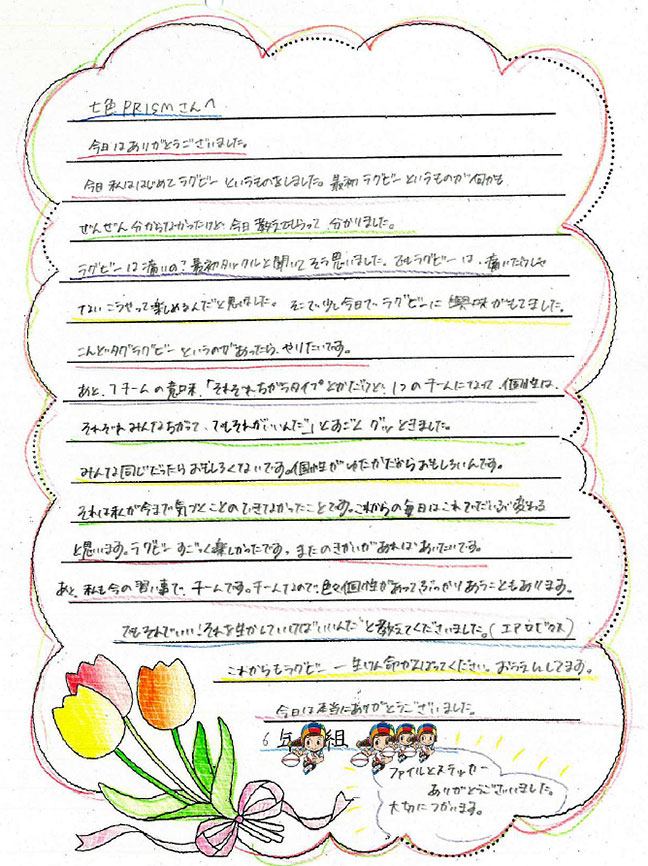 七色PRISMさんへ
今日はありがとうございました。
今日私ははじめてラグビーというものをしました。最初ラグビーというものが何かも
ぜんぜん分からなかったけど、今日教えてもらって、分かりました。
ラグビーは痛いの?最初タックルと聞いてそう思いました。でもラグビーは、痛いだけじゃ
ないこうやって楽しめるんだと思いました。そこで少し今日でラグビーに興味がもてました。
こんどタグラグビーというのがあったら、やりたいです。
あと、チームの意味、「それぞれちがうタイプとかだけど、1つのチームになって、個性は、
それぞれみんなちがって、でもそれがいいんだ」とすごくグッときました。
みんな同じだったらおもしろくないです。個性がゆたかだからおもしろいんです。
それは私が今まで気づくことのできてなかったことです。これからの毎日はこれでだいぶ変わる
と思います。ラグビーすごっく楽しかったです、またのきかいがあればあいたいです。
あと、私も今の習い事で、チームです。チームなので、色々個性があってぶつかりあうこともあります。
でもそれでいい!それを生かしていけばいいんだ"と教えてくださいました。(エアロビクス)
これからもラグビー一生けん命がんばってください。おうえんしてます。
今日は本当にありがとうございました。
6年 組
ファイルとステッカー
ありがとうございました。
大切につかいます。